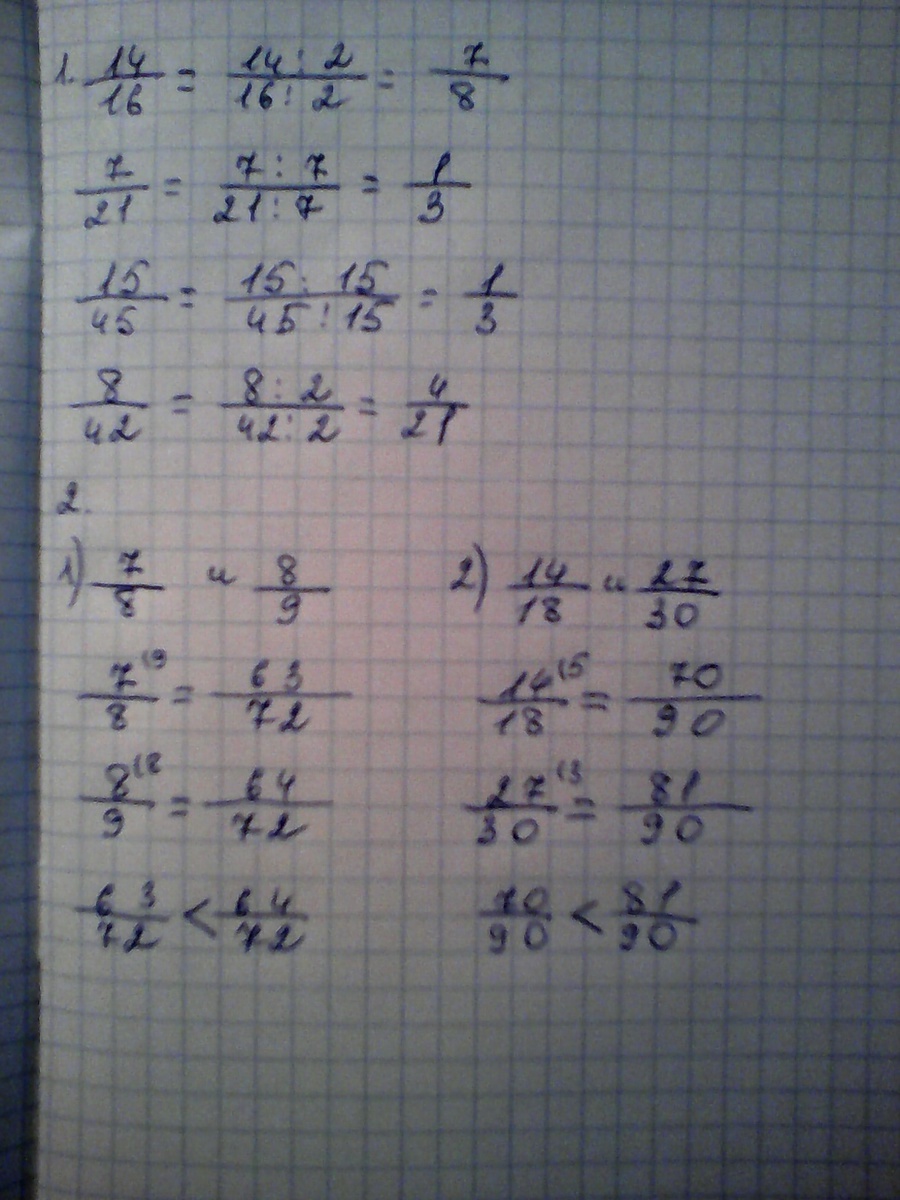 1. 14/16 = 14 : 2/16 : 2 = 7/8
7/21 = 7 : 7/21 : 7 = 1/3
15/45 = 15 : 15/45 : 15 = 1/3
8/42 = 8 : 2/42 : 2 = 4/21
2.
1) 7/8 и 8/9
7/8 (9 = 63/72
8/9 (8 = 64/72
63/72 < 64/72
2) 14/18 и 27/30
14/18 (5 = 70/90
27/30 (3 = 81/90
70/90 < 81/90